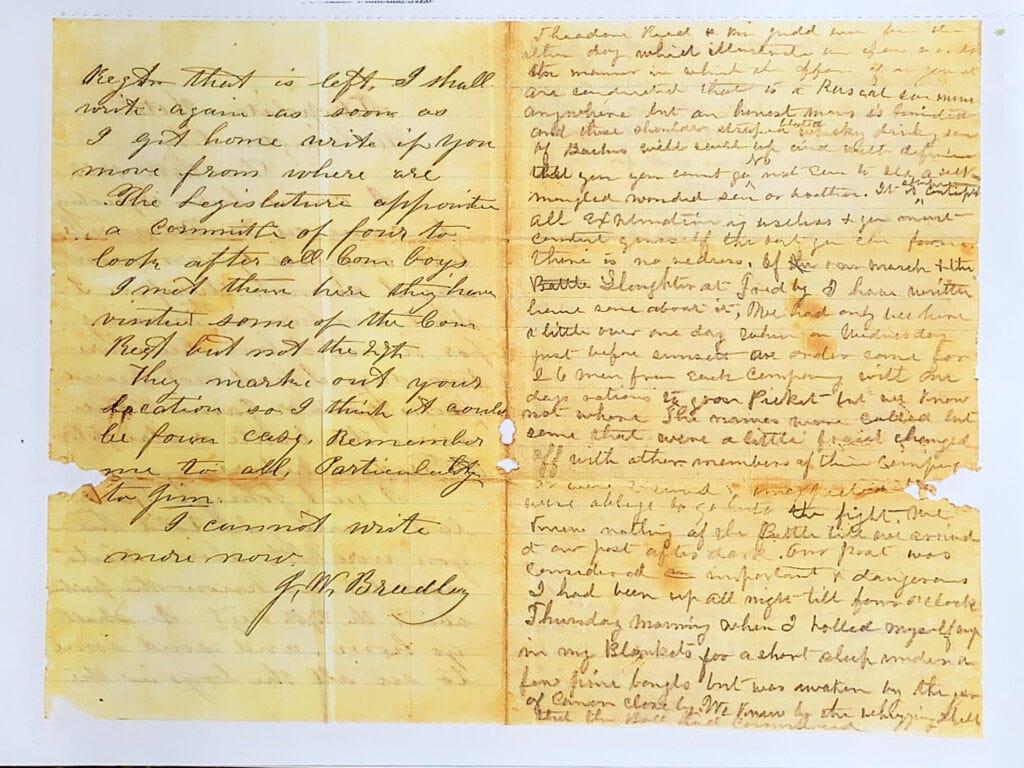 Regtn that is left, I shall
write again as soon as
I get home write if you
move from where are
The Legislature appointed
a committe of four to
look after all Conn boys
I met them here they have
visited some of the Conn
Regt but not the 27th
They marke out your
location so I think it could
be foun easy. Remember
me to all, Particularly
to Jim.
I cannot write
more now.
J. W. Bradley
Theodore Reed & Mr Judd over here the
other day which illustrate
the manner in which the affairs
are conducted that to a Rascal can
anywhere but an honest man is
and those shoulder straped bloated whisky drinking son
of Bachus will and will
that you you cannot go No not even to see a sick
mangled wonded son or brother. It is
all Explanation is useless & you must
conduct yourself the best you can for
there is no redress. Of our march & the
Battle Slaughter at Fredby I have written
home some about it, We had only been here
a little over one day when on Wednesday
just before sunsett an order came for
26 men from each Company with one
days rations to go on Picket but we know
not where The names were called but
some that were a little changed
off with other members of their Company
were oblige to go into the fight. We
knew nothing of the Battle till we arrived
at our post after dark. Our post was
considered important & dangerous
I had been up all night till four o'clock
Thursday morning when I rolled myself up
in my Blankets for a short sleep under a
few pine boughs but was awaken by the
of Canon close by. We knew by the whizzing shell
that the Ball had commenced